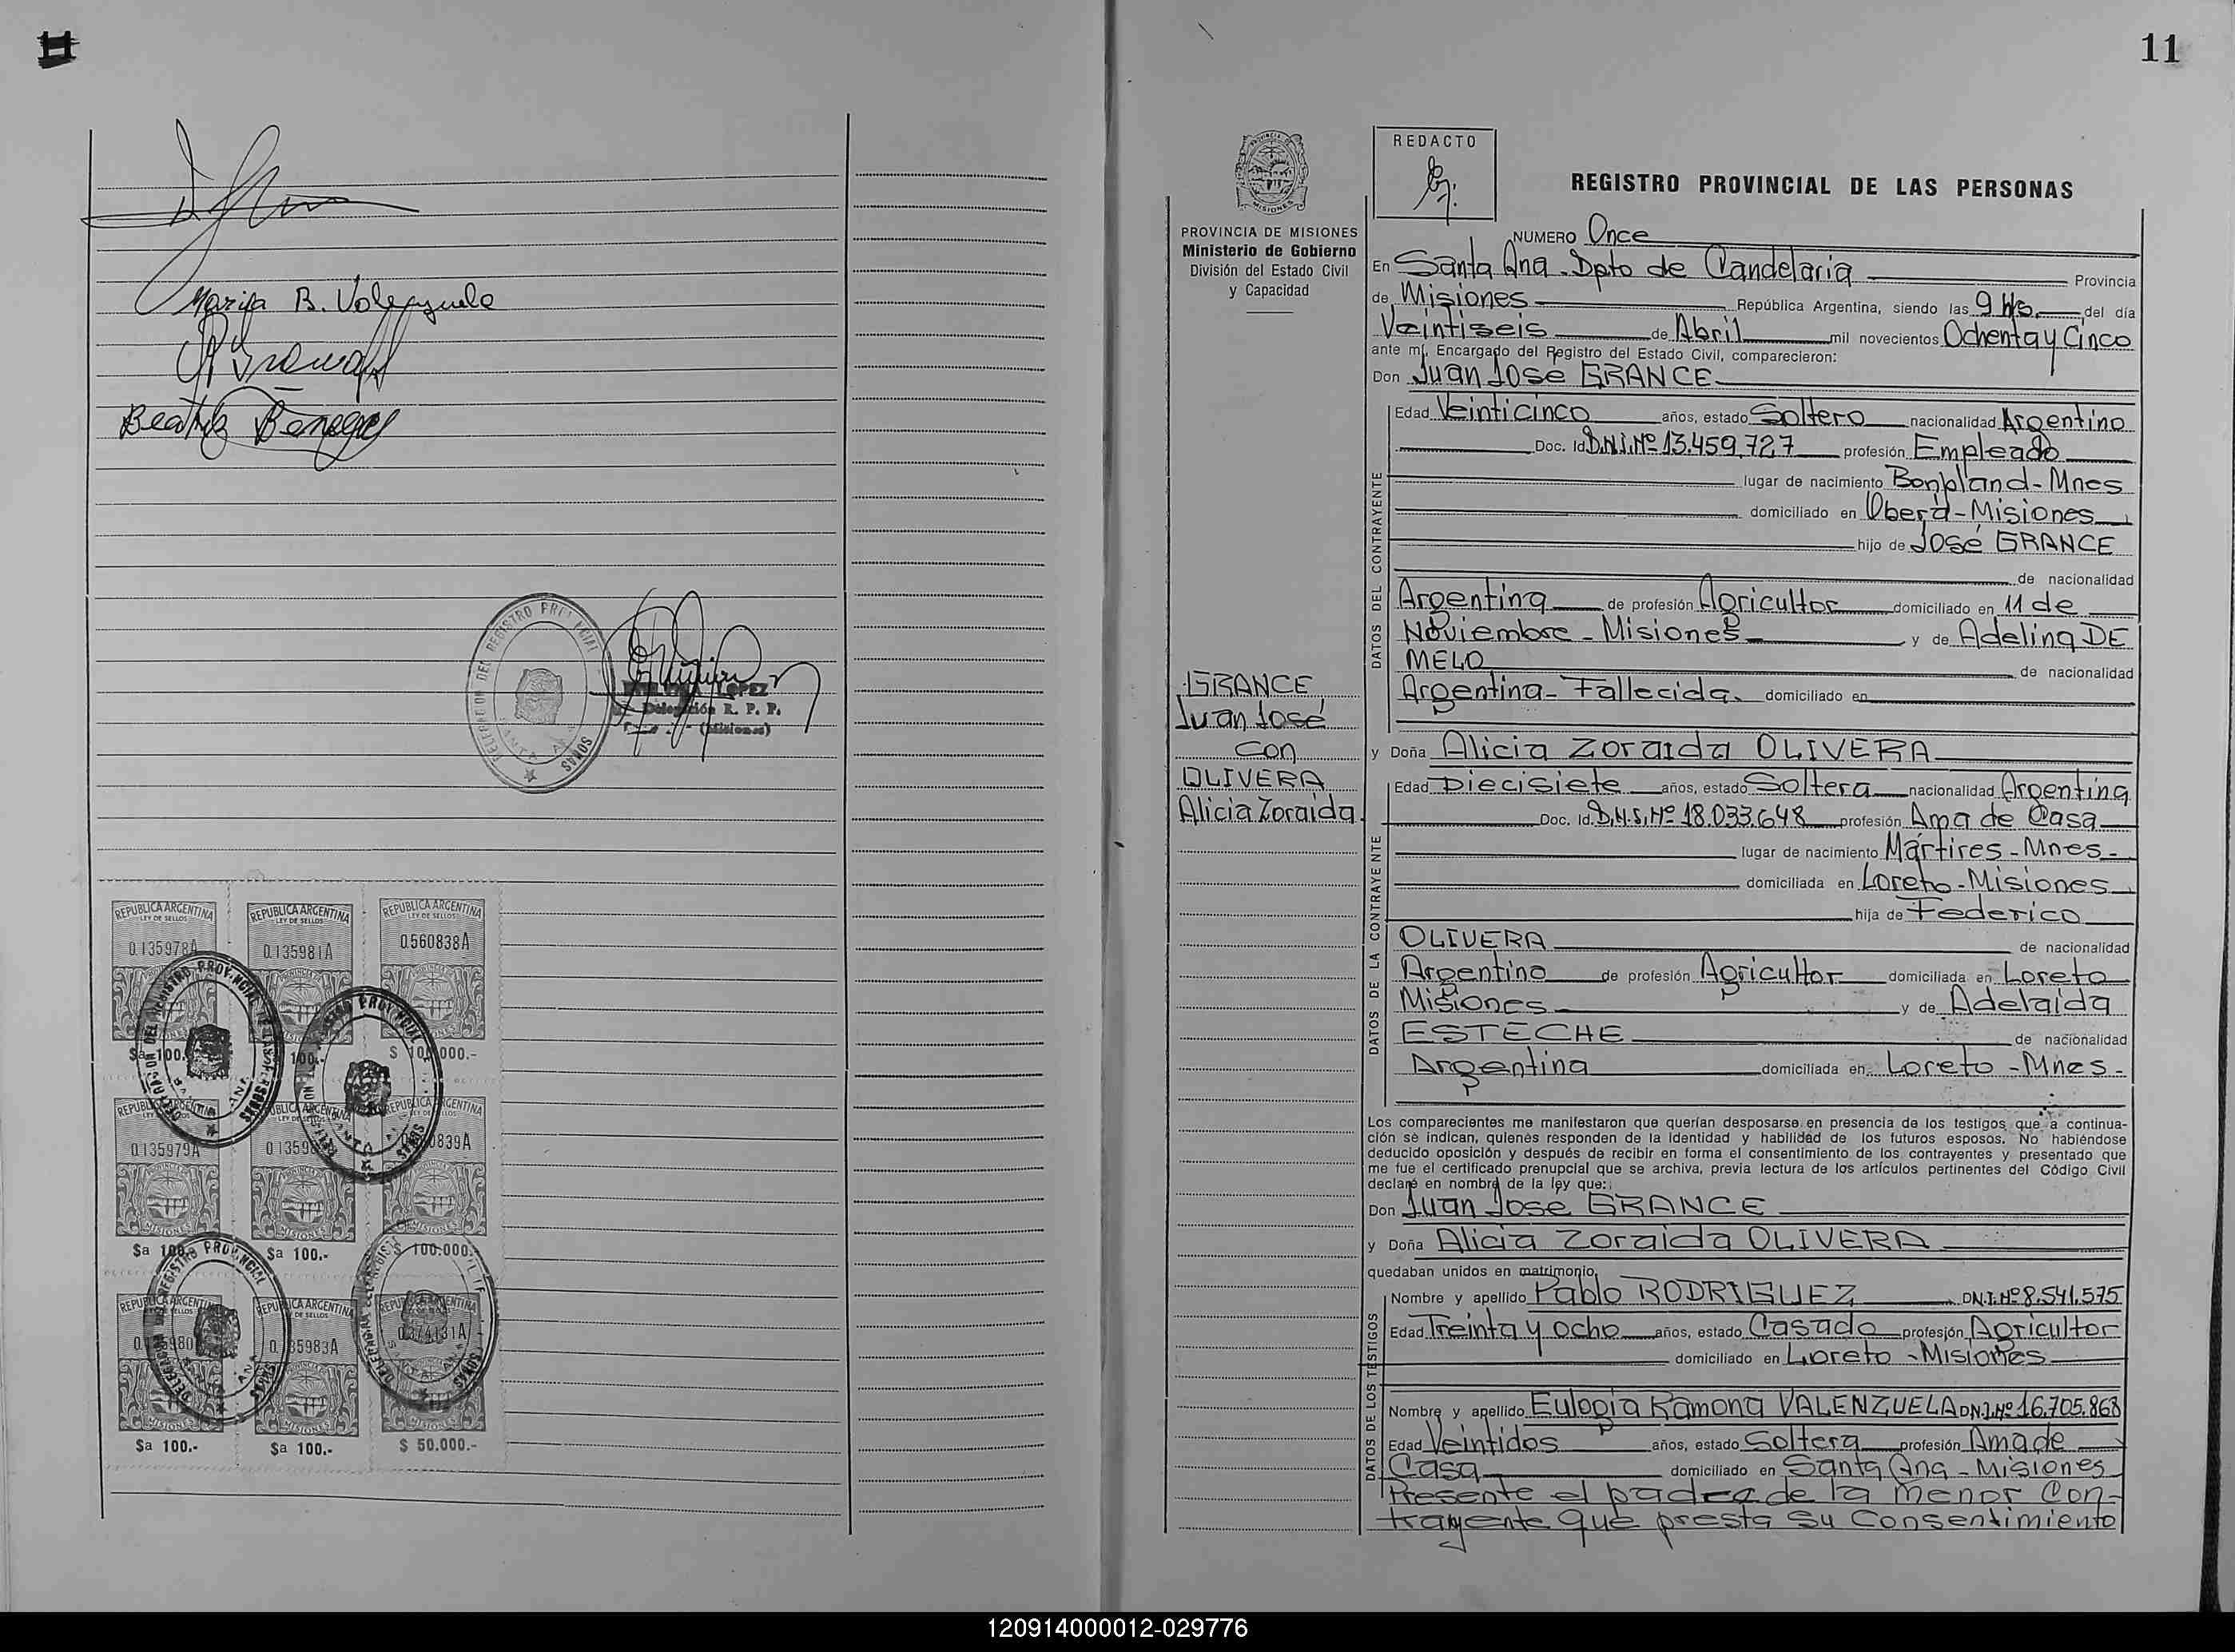 11
Marisa B. Valenzuela
Beatriz Benegas
DELEGACION DEL REGISTRO PROVINCIAL
SANTA ANA
LOPEZ
Delegación R. P. P.
(Misiones)
REPUBLICA ARGENTINA REPUBLICA ARGENTINA REPUBLICA ARGENTINA
LEY DE SELLOS LEY DE SELLOS LEY DE SELLOS
0.135978A 0.135981A 0.560838A
$a 100.- 100.- $ 100.000.-
0.135979A
$a 100.- $a 100.- $ 100.000.-
REPUBLICA ARGENTINA REPUBLICA ARGENTINA
$a 100.- $a 100.- $ 50.000.-
11
REDACTO
REGISTRO PROVINCIAL DE LAS PERSONAS
PROVINCIA DE MISIONES
Ministerio de Gobierno
División del Estado Civil
y Capacidad
GRANCE
Juan José
con
OLIVERA
Alicia Zoraida
NUMERO Once
En Santa Ana - Dpto de Candelaria Provincia
de Misiones República Argentina, siendo las 9 Hs. del día
Veintiseis de Abril mil novecientos Ochenta y Cinco
ante mí, Encargado del Registro del Estado Civil, comparecieron:
Don Juan José GRANCE
DATOS DEL CONTRAYENTE
Edad Veinticinco años, estado Soltero nacionalidad Argentino
Doc. Id. D.N.I. Nº 13.459.727 profesión Empleado
lugar de nacimiento Bonpland - Mnes
domiciliado en Oberá - Misiones
hijo de José GRANCE
de nacionalidad
Argentina de profesión Agricultor domiciliado en 11 de
Noviembre - Misiones y de Adelina DE
MELO de nacionalidad
Argentina - Fallecida. domiciliado en
y Doña Alicia Zoraida OLIVERA
DATOS DE LA CONTRAYENTE
Edad Diecisiete años, estado Soltera nacionalidad Argentina
Doc. Id. D.N.I. Nº 18.033.648 profesión Ama de Casa
lugar de nacimiento Mártires - Mnes -
domiciliada en Loreto - Misiones
hija de Federico
OLIVERA de nacionalidad
Argentino de profesión Agricultor domiciliada en Loreto
Misiones y de Adelaida
ESTECHE de nacionalidad
Argentina domiciliada en Loreto - Mnes -
Los comparecientes me manifestaron que querían desposarse en presencia de los testigos que a continua-
ción se indican, quienes responden de la identidad y habilidad de los futuros esposos. No habiéndose
deducido oposición y después de recibir en forma el consentimiento de los contrayentes y presentado que
me fue el certificado prenupcial que se archiva, previa lectura de los artículos pertinentes del Código Civil
declaré en nombre de la ley que:
Don Juan José GRANCE
y Doña Alicia Zoraida OLIVERA
quedaban unidos en matrimonio.
DATOS DE LOS TESTIGOS
Nombre y apellido Pablo RODRIGUEZ D.N.I. Nº 8.541.575
Edad Treinta y ocho años, estado Casado profesión Agricultor
domiciliado en Loreto - Misiones
Nombre y apellido Eulogia Ramona VALENZUELA D.N.I. Nº 16.705.868
Edad Veintidos años, estado Soltera profesión Ama de
Casa domiciliado en Santa Ana - Misiones
Presente el padre de la menor con-
trayente que presta su consentimiento
120914000012-029776